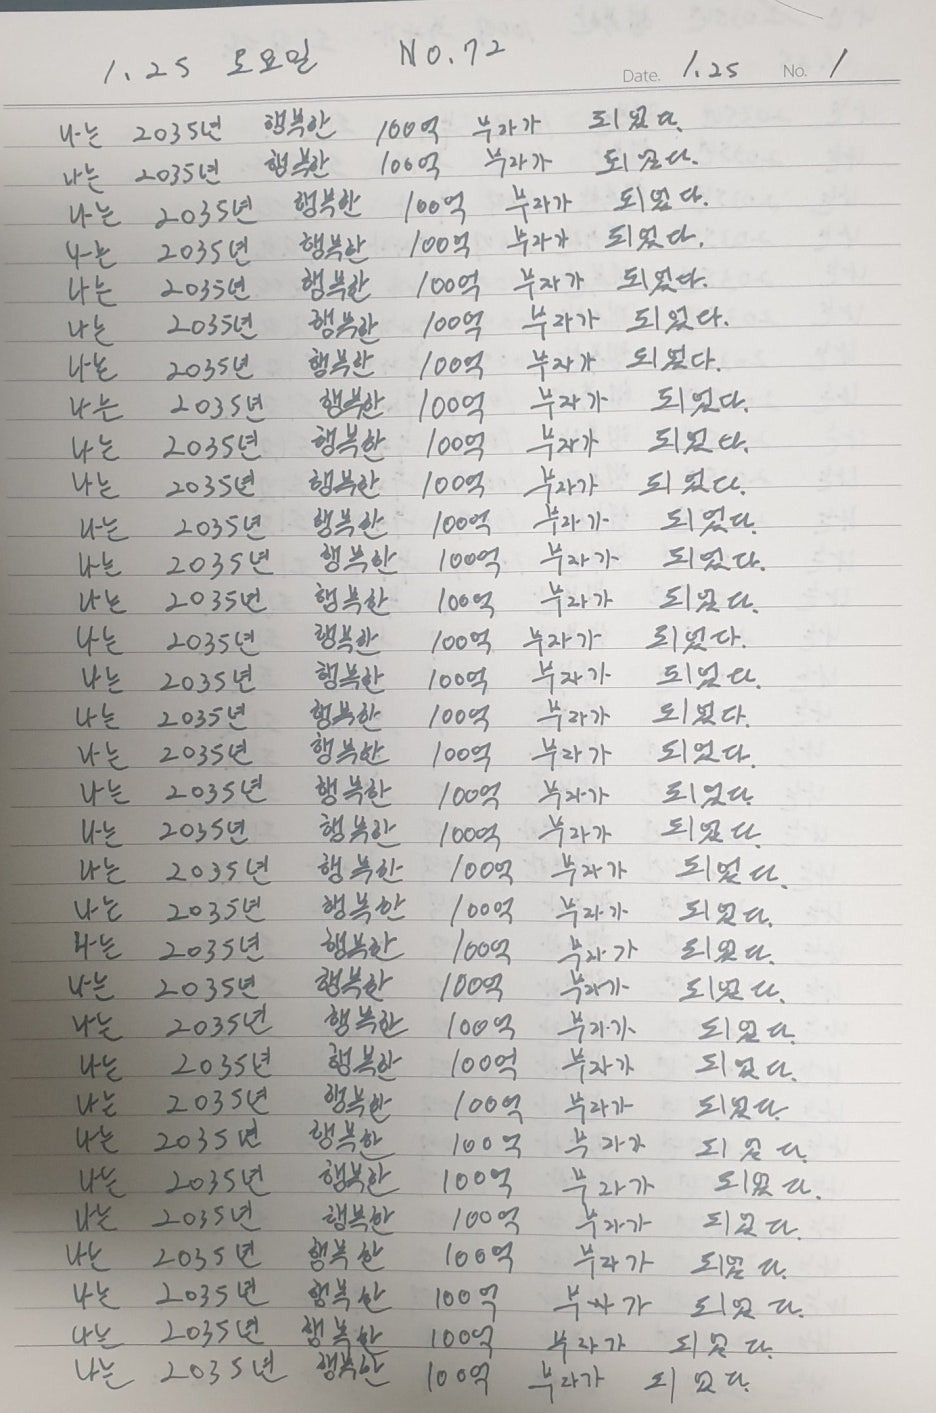 1.25 토요일 NO.72
Date. 1.25 No. 1
나는 2035년 행복한 100억 부자가 되었다.
나는 2035년 행복한 100억 부자가 되었다.
나는 2035년 행복한 100억 부자가 되었다.
나는 2035년 행복한 100억 부자가 되었다.
나는 2035년 행복한 100억 부자가 되었다.
나는 2035년 행복한 100억 부자가 되었다.
나는 2035년 행복한 100억 부자가 되었다.
나는 2035년 행복한 100억 부자가 되었다.
나는 2035년 행복한 100억 부자가 되었다.
나는 2035년 행복한 100억 부자가 되었다.
나는 2035년 행복한 100억 부자가 되었다.
나는 2035년 행복한 100억 부자가 되었다.
나는 2035년 행복한 100억 부자가 되었다.
나는 2035년 행복한 100억 부자가 되었다.
나는 2035년 행복한 100억 부자가 되었다.
나는 2035년 행복한 100억 부자가 되었다.
나는 2035년 행복한 100억 부자가 되었다.
나는 2035년 행복한 100억 부자가 되었다.
나는 2035년 행복한 100억 부자가 되었다.
나는 2035년 행복한 100억 부자가 되었다.
나는 2035년 행복한 100억 부자가 되었다.
나는 2035년 행복한 100억 부자가 되었다.
나는 2035년 행복한 100억 부자가 되었다.
나는 2035년 행복한 100억 부자가 되었다.
나는 2035년 행복한 100억 부자가 되었다.
나는 2035년 행복한 100억 부자가 되었다.
나는 2035년 행복한 100억 부자가 되었다.
나는 2035년 행복한 100억 부자가 되었다.
나는 2035년 행복한 100억 부자가 되었다.
나는 2035년 행복한 100억 부자가 되었다.
나는 2035년 행복한 100억 부자가 되었다.
나는 2035년 행복한 100억 부자가 되었다.
나는 2035년 행복한 100억 부자가 되었다.